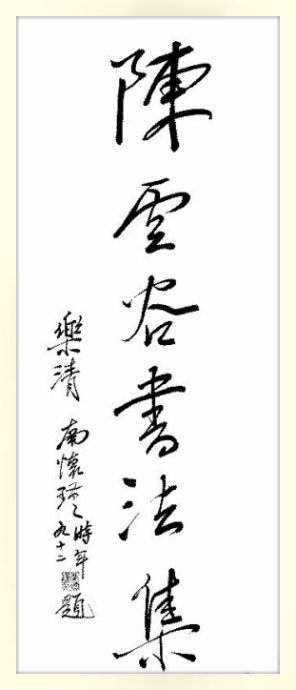 陳雲容書法集
樂清 南懷瑾 時年九十二 題